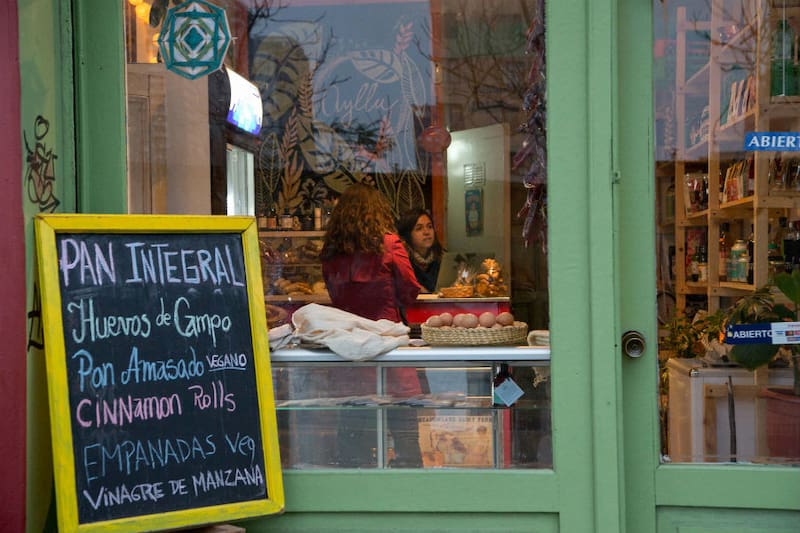 Ayllu
ABIERTO
PAN INTEGRAL
Huevos de Campo
Pan Amasado VEGANO
CINNAMON Rolls
EMPANADAS Veg
VINAGRE DE MANZANA
ABIERTO